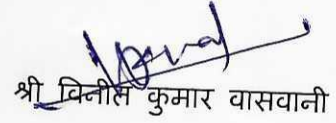 श्री विनीत कुमार वासवानी